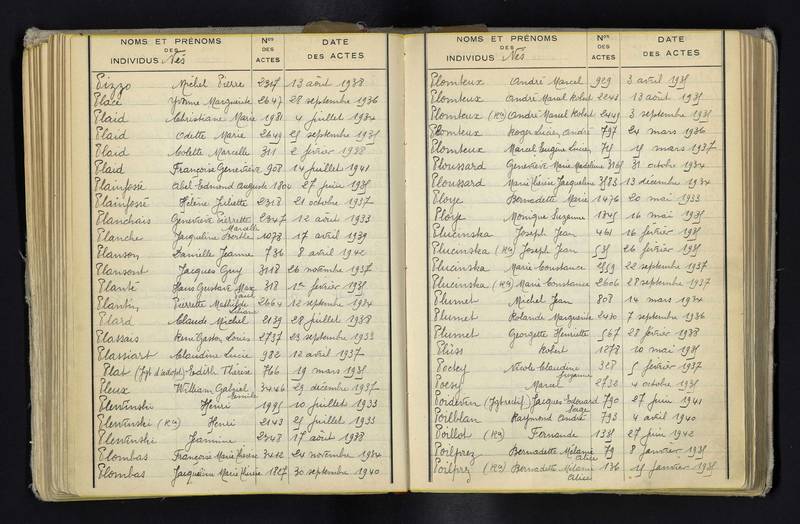 NOMS ET PRÉNOMS
DES
INDIVIDUS Nés
Nos
DES
ACTES
DATE
DES ACTES
Pizzo Michel Pierre 2317 13 août 1938
Place Yvonne Marguerite 2647 28 septembre 1936
Plaid Christiane Marie 1981 4 juillet 1934
Plaid Odette Marie 2649 25 septembre 1935
Plaid Colette Marcelle 311 2 février 1938
Plaid Françoise Geneviève 908 14 juillet 1941
Plainfossé Abel Edmond Auguste 1804 27 juin 1935
Plainfossé Hélène Juliette 2318 21 octobre 1937
Planchais Geneviève Pierrette 2247 12 août 1933
Marcelle
Planche Jacqueline Berthe 1078 17 avril 1939
Planson Danielle Jeanne 736 8 avril 1942
Plansont Jacques Guy 3118 26 novembre 1937
Planté Hans Gustave Max 318 1er février 1935
Paul
Plantin Pierrette Mathilde 2664 12 septembre 1934
Liliane
Plard Claude Michel 2139 28 juillet 1938
Plassais René Gaston Louis 2737 23 septembre 1933
Plassiart Claudine Lucie 982 12 avril 1937
Plat (Jgt d'adopt) Edith Thérèse 766 19 mars 1935
Pleux William Gabriel 3446 29 décembre 1937
Camille
Plewinski Henri 1995 10 juillet 1933
Plewinski (Rn) Henri 2143 25 juillet 1933
Plewinski Jannine 2348 17 août 1938
Plombas Françoise Marie Thérèse 3412 24 novembre 1934
Plombas Jacqueline Marie Thérèse 1867 30 septembre 1940
NOMS ET PRÉNOMS
DES
INDIVIDUS Nés
Nos
DES
ACTES
DATE
DES ACTES
Plomteux André Marcel 929 3 avril 1935
Plomteux André Marcel Robert 2243 13 août 1935
Plomteux (Rn) André Marcel Robert 2449 3 septembre 1935
Plomteux Roger Lucien André 795 24 mars 1936
Plomteux Marcel Eugène Lucien 745 15 mars 1937
Ploussard Geneviève Marie Madeleine 3185 31 octobre 1934
Ploussard Marie Thérèse Jacqueline 3583 13 décembre 1934
Ploye Bernadette Marie 1476 20 mai 1933
Ploye Monique Suzanne 1345 16 mai 1935
Plucinska Joseph Jean 461 16 février 1935
Plucinska (Rn) Joseph Jean 535 26 février 1935
Plucinska Marie Constance 2559 22 septembre 1937
Plucinska (Rn) Marie Constance 2606 28 septembre 1937
Plumet Michel Jean 808 14 mars 1934
Plumet Rolande Marguerite 2430 7 septembre 1936
Plumet Georgette Henriette 567 28 février 1938
Plüss Robert 1278 10 mai 1935
Pocky Nicole Claudine 328 5 février 1937
Poesy Marcel 2732 4 octobre 1935
Poidevin (Jgt rectif) Jacques Edouard 790 27 juin 1941
Serge
Poilblan Raymond André 793 4 avril 1940
Poillot (Rn) Fernande 1385 27 juin 1942
Poilprez Bernadette Mélanie 79 8 janvier 1935
Alice
Poilprez (Rn) Bernadette Mélanie 136 15 janvier 1935
Alice